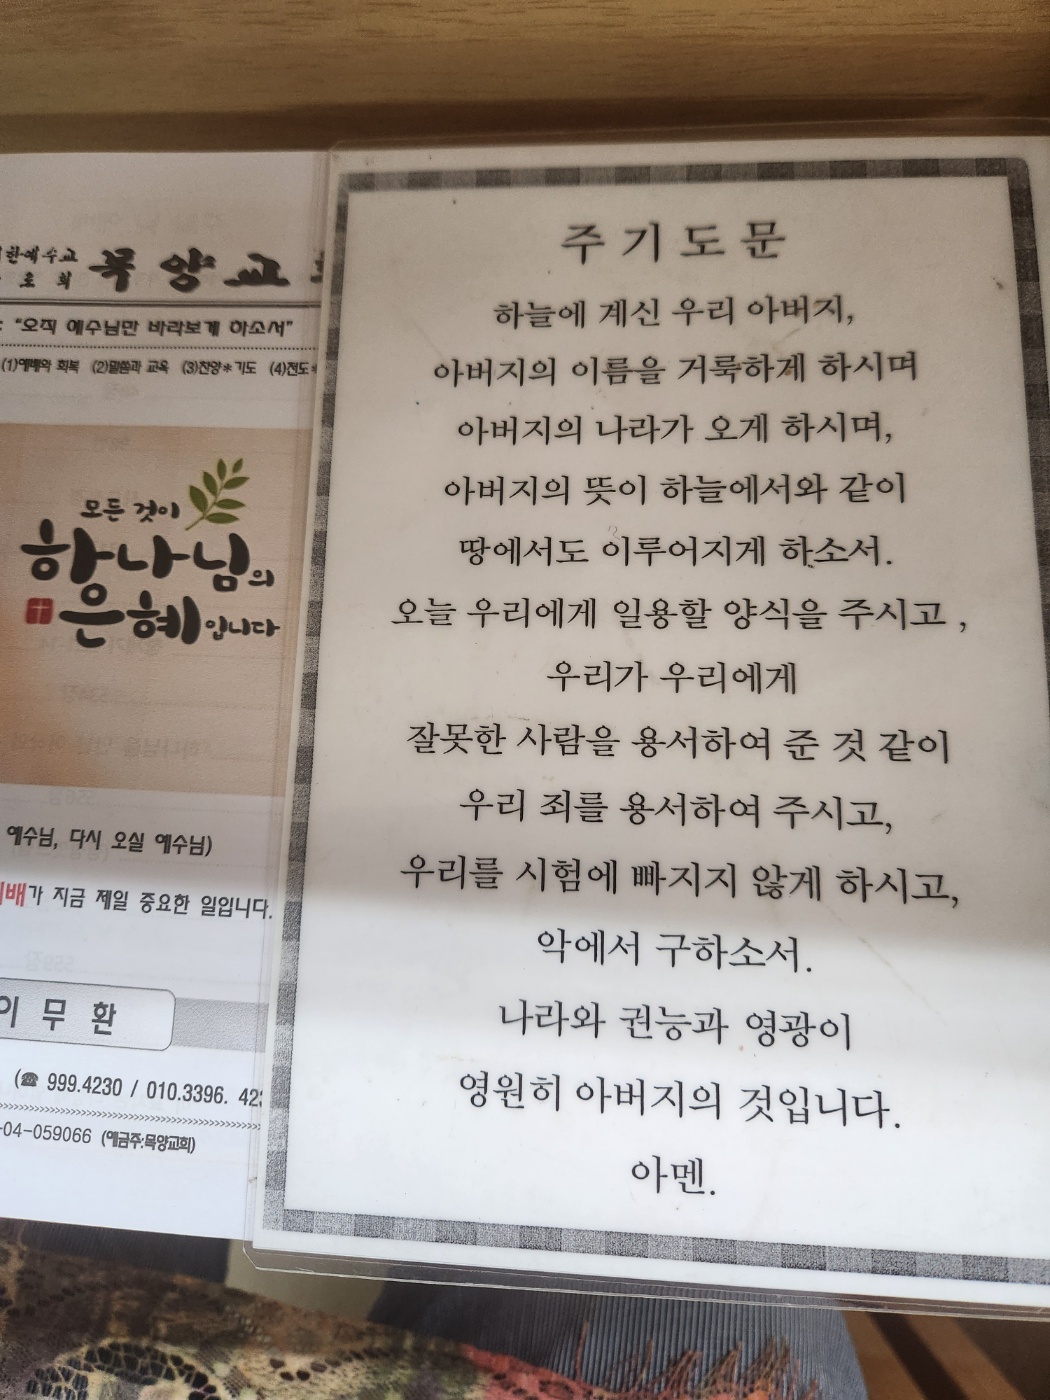 한예수교
로 회
목양교
"오직 예수님만 바라보게 하소서"
(1)예배와 회복 (2)말씀과 교육 (3)찬양*기도 (4)전도*
모든 것이
하나님의
은혜입니다
예수님, 다시 오실 예수님)
배가 지금 제일 중요한 일입니다.
이 무 환
(☎ 999.4230 / 010.3396. 42
-04-059066 (예금주:목양교회)
주기도문
하늘에 계신 우리 아버지,
아버지의 이름을 거룩하게 하시며
아버지의 나라가 오게 하시며,
아버지의 뜻이 하늘에서와 같이
땅에서도 이루어지게 하소서.
오늘 우리에게 일용할 양식을 주시고 ,
우리가 우리에게
잘못한 사람을 용서하여 준 것 같이
우리 죄를 용서하여 주시고,
우리를 시험에 빠지지 않게 하시고,
악에서 구하소서.
나라와 권능과 영광이
영원히 아버지의 것입니다.
아멘.